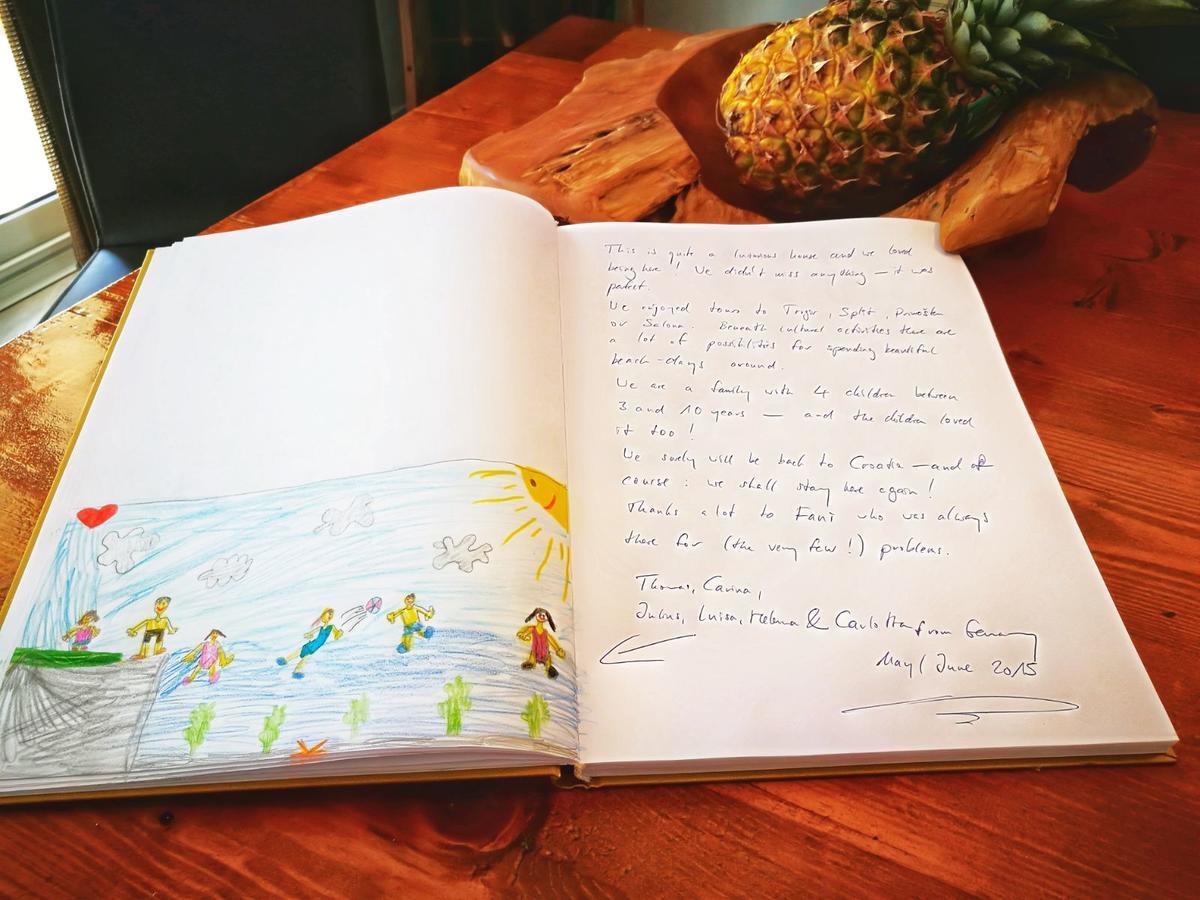 This is quite a luxurious house and we loved
being here! We didn't miss anything – it was
perfect.
We enjoyed tours to Trogir, Split, Primošten
or Salona. Beneath cultural activities there are
a lot of possibilities for spending beautiful
beach-days around.
We are a family with 4 children between
3 and 10 years – and the children loved
it too!
We surely will be back to Croatia – and of
course: we shall stay here again!
Thanks a lot to Fani who was always
there for (the very few!) problems.
Thomas, Carina,
Julius, Luisa, Helena & Carlotta from Germany
May/June 2015